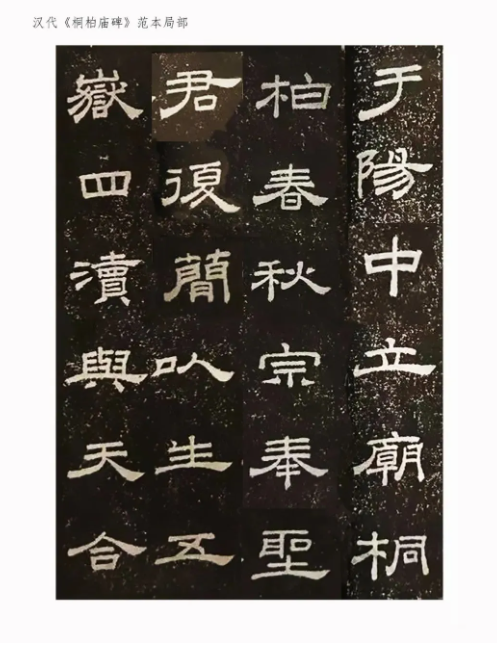 汉代《桐柏庙碑》范本局部
于陽中立廟桐
柏春秋宗奉聖
君復簡㕥生五
嶽四瀆與天合